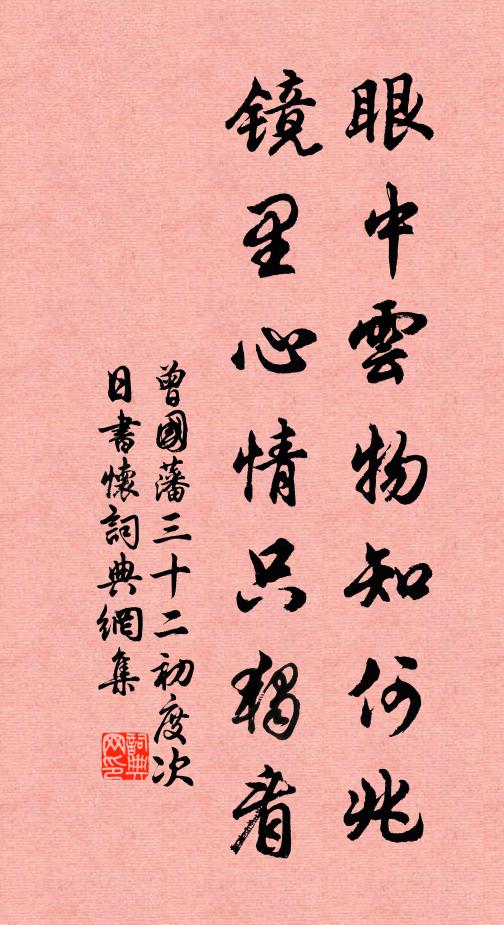 眼中雲物知何兆
镜里心情只獨看
曾國藩三十二初度次
日書懷詞典網集
詞典网印